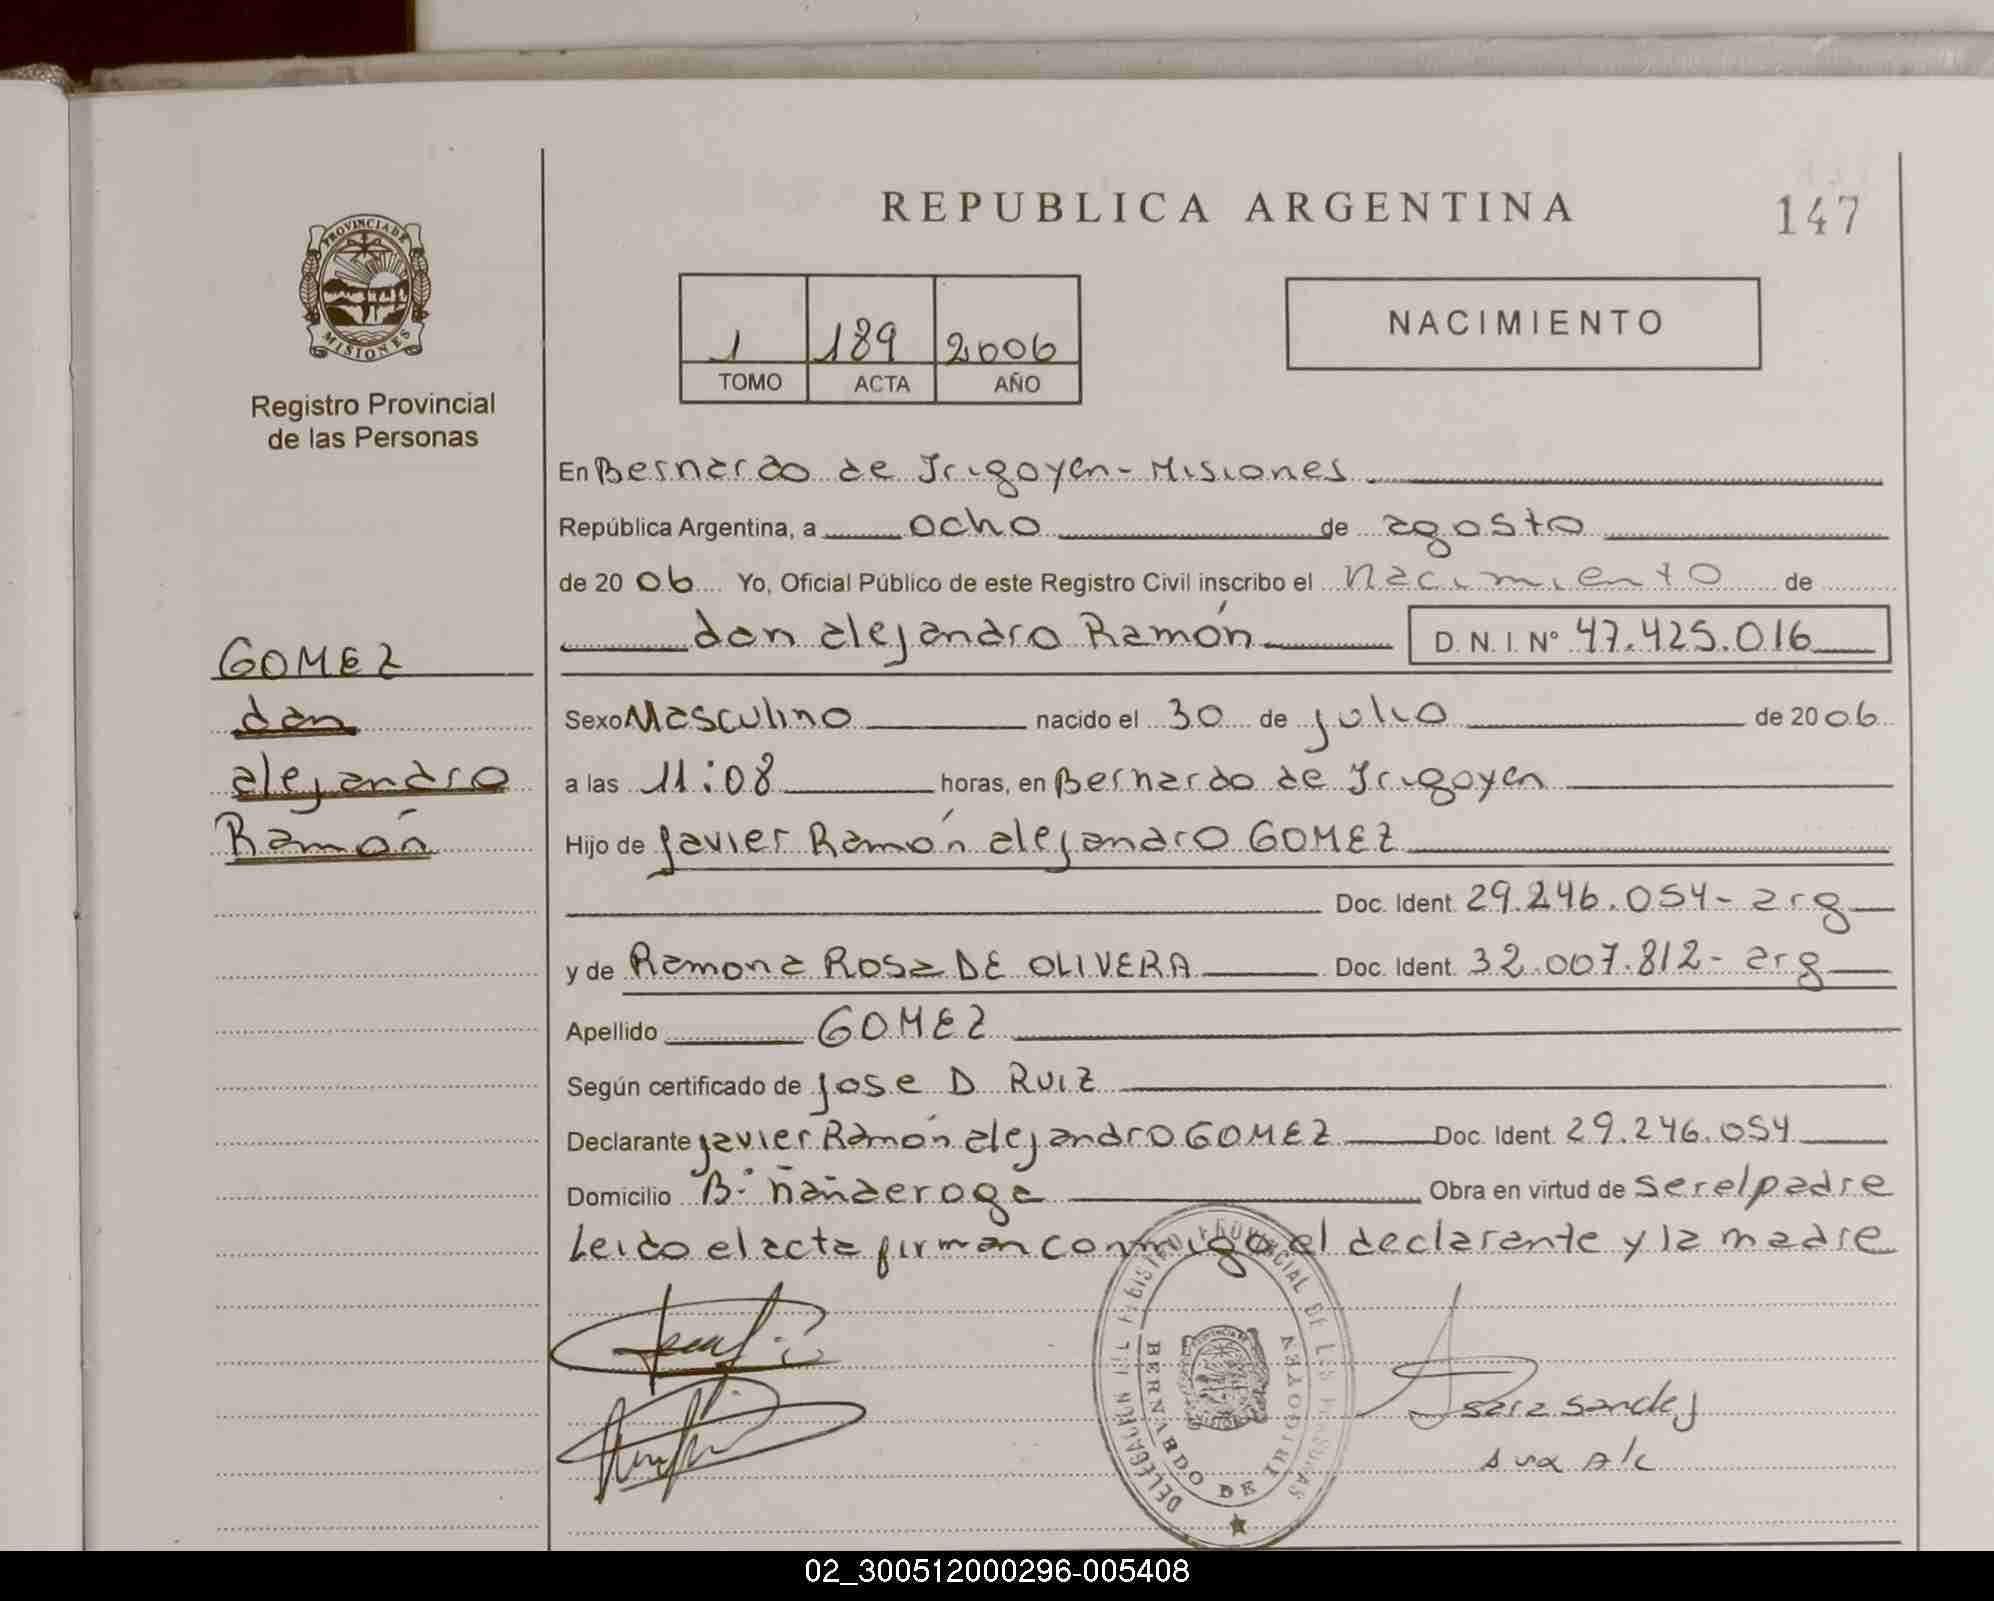 REPUBLICA ARGENTINA
147
PROVINCIA DE
MISIONES
Registro Provincial
de las Personas
1 189 2006
TOMO ACTA AÑO
NACIMIENTO
En Bernardo de Irigoyen - Misiones
República Argentina, a ocho de agosto
de 2006 Yo, Oficial Público de este Registro Civil inscribo el Nacimiento de
dan alejandro Ramón D. N. I. N° 47.425.016
GOMEZ
dan
alejandro
Ramón
Sexo Masculino nacido el 30 de julio de 2006
a las 11:08 horas, en Bernardo de Irigoyen
Hijo de Javier Ramón alejandro GOMEZ
Doc. Ident. 29.246.054 - arg
y de Ramona Rosa DE OLIVERA Doc. Ident. 32.007.812 - arg
Apellido GOMEZ
Según certificado de Jose D Ruiz
Declarante Javier Ramón alejandro GOMEZ Doc. Ident. 29.246.054
Domicilio B° Ñanderoga Obra en virtud de ser el padre
Leido el acta firman conmigo el declarante y la madre
DELEGACION DEL REGISTRO PROVINCIAL DE LAS PERSONAS
BERNARDO DE IRIGOYEN
02_300512000296-005408